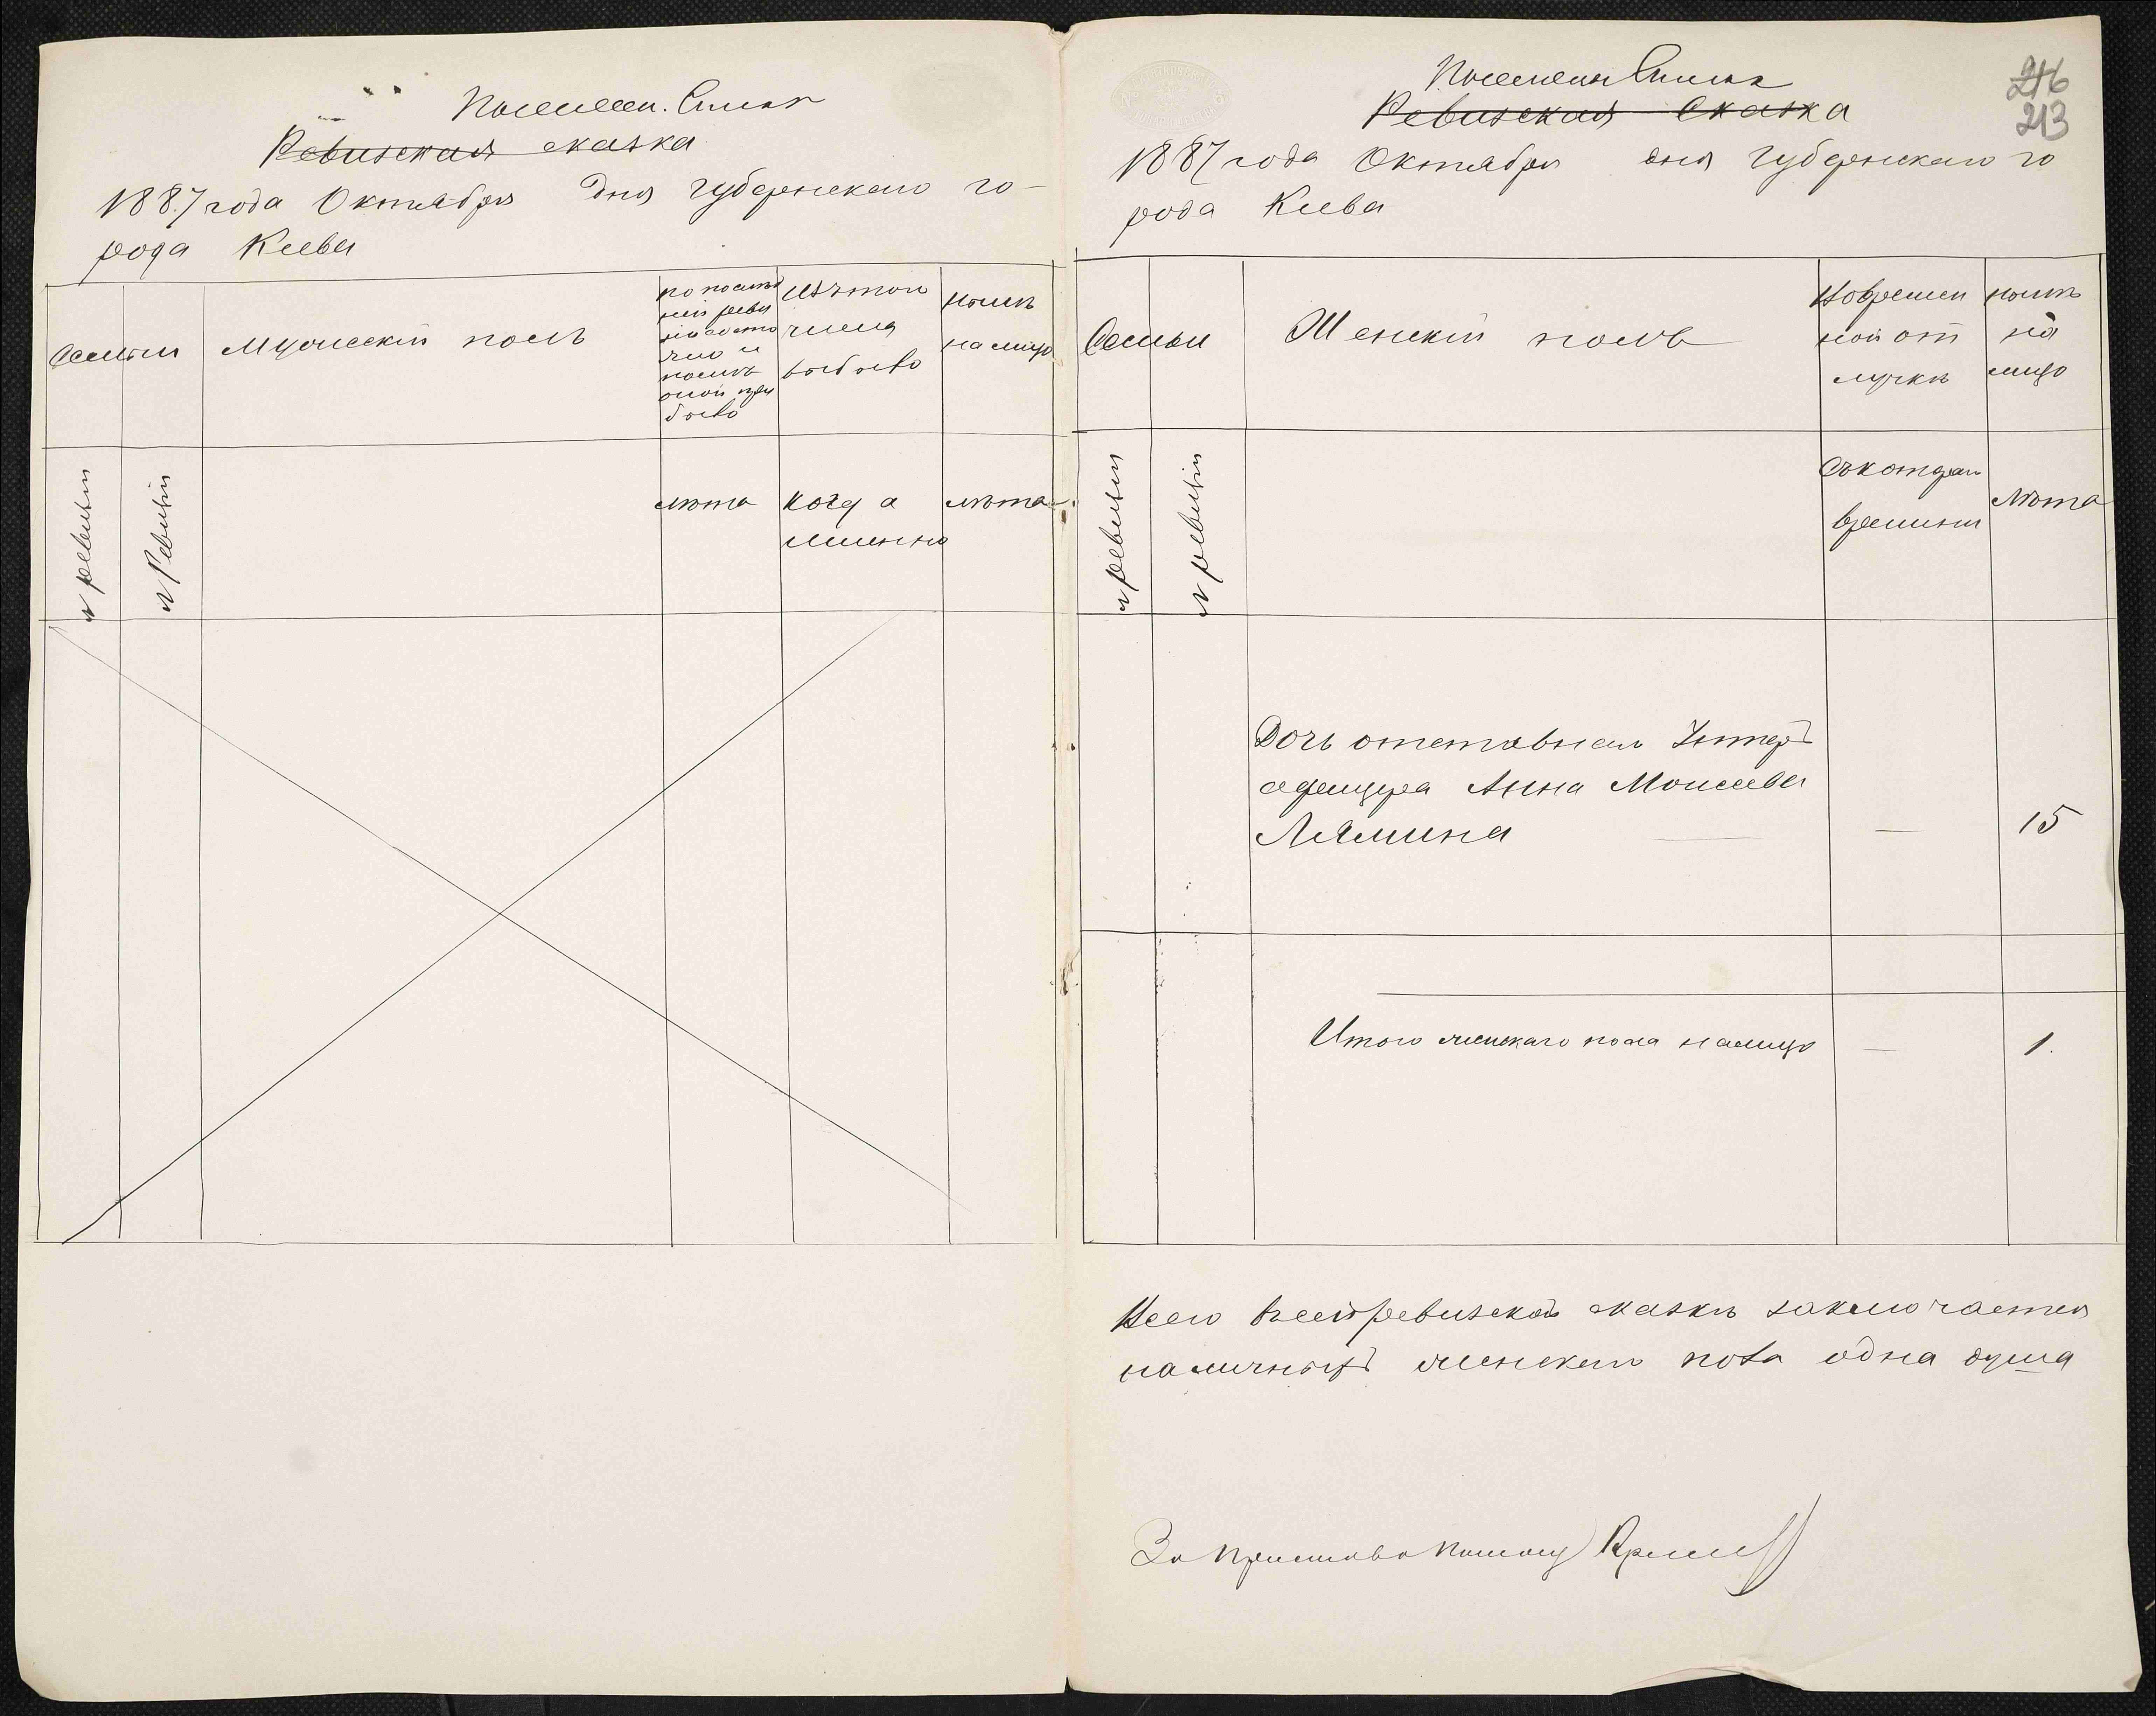 Посемен. Списк
Ревизская сказка
1887 года Октября дня губернскаго го-
рода Киева
Семьи
Мужескій полъ
по послѣд
ней реви
зіи состо
яло и
послѣ
оной при
было
Изъ того
числа
выбыло
Нынѣ
на лицо
№ ревизіи
№ Ревизіи
лѣта
когда
именно
лѣта
Посемен Списк
Ревизская Сказка
216
213
1887 года Октября дня губернскаго го
рода Киева
Семьи
Женскій полъ
Во времен
ной от
лучкѣ
нынѣ
на
лицо
№ ревизіи
№ ревизіи
Съ котораго
времени
Лѣта
Дочь отставнаго Унтеръ
офицера Анна Моисеева
Лямина — — 15
Итого женскаго пола налицо — 1.
Всего въ сей ревизской сказкѣ заключается
наличныхъ женскаго пола одна душа
За Пристава Помощ